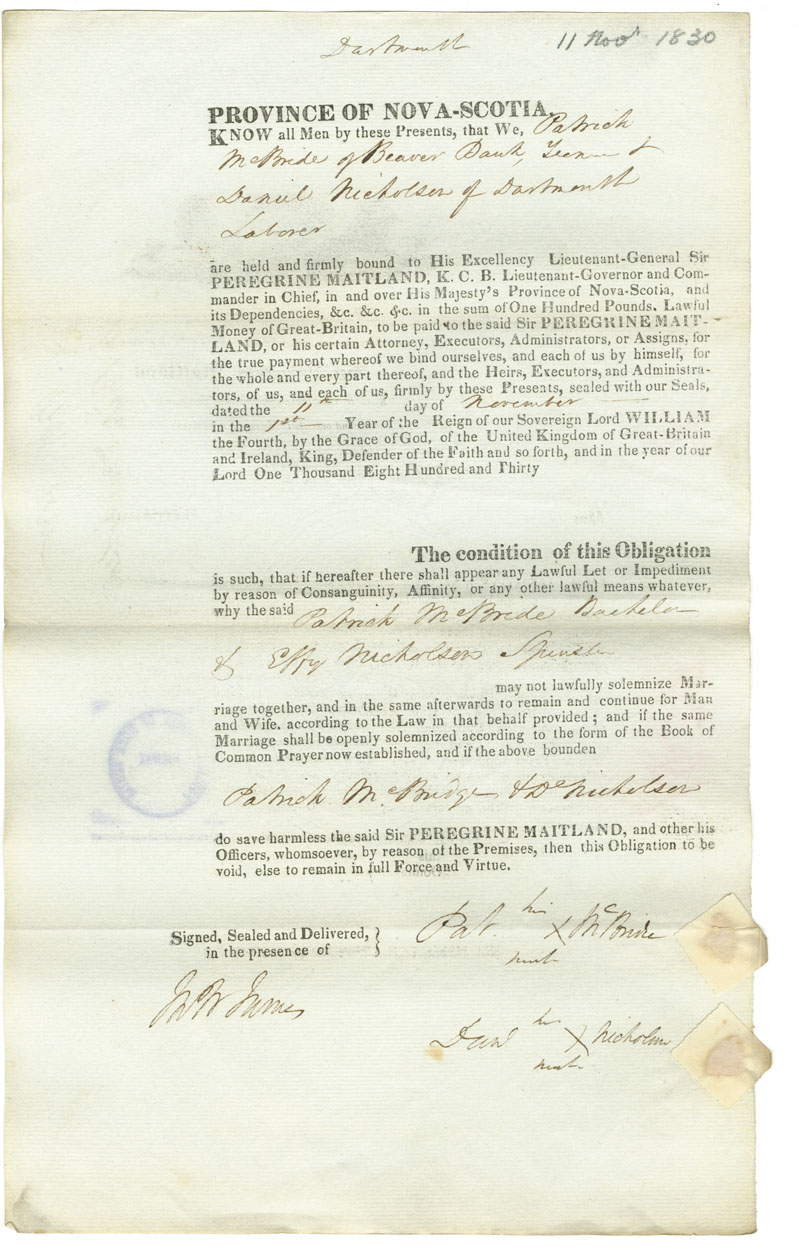 Dartmouth 11 Novr 1830
PROVINCE OF NOVA-SCOTIA.
KNOW all Men by these Presents, that We, Patrick
McBride of Beaver Bank, &
Daniel Nicholson of Dartmouth
Laborer
are held and firmly bound to His Excellency Lieutenant-General Sir
PEREGRINE MAITLAND, K. C. B. Lieutenant-Governor and Com-
mander in Chief, in and over His Majesty's Province of Nova-Scotia, and
its Dependencies, &c. &c. &c. in the sum of One Hundred Pounds. Lawful
Money of Great-Britain, to be paid to the said Sir PEREGRINE MAIT-
LAND, or his certain Attorney, Executors, Administrators, or Assigns, for
the true payment whereof we bind ourselves, and each of us by himself, for
the whole and every part thereof, and the Heirs, Executors, and Administra-
tors, of us, and each of us, firmly by these Presents, sealed with our Seals,
dated the 11th day of November
in the 1st Year of the Reign of our Sovereign Lord WILLIAM
the Fourth, by the Grace of God, of the United Kingdom of Great-Britain
and Ireland, King, Defender of the Faith and so forth, and in the year of our
Lord One Thousand Eight Hundred and Thirty
The condition of this Obligation
is such, that if hereafter there shall appear any Lawful Let or Impediment
by reason of Consanguinity, Affinity, or any other lawful means whatever,
why the said Patrick McBride Bachelor
& Effy Nicholson Spinster
may not lawfully solemnize Mar-
riage together, and in the same afterwards to remain and continue for Man
and Wife. according to the Law in that behalf provided; and if the same
Marriage shall be openly solemnized according to the form of the Book of
Common Prayer now established, and if the above bounden
Patrick McBridge & Dl Nicholson
do save harmless the said Sir PEREGRINE MAITLAND, and other his
Officers, whomsoever, by reason of the Premises, then this Obligation to be
void, else to remain in full Force and Virtue.
Signed, Sealed and Delivered,
in the presence of
his
Pat. X McBride
mark
James
his
Danl X Nicholson
mark